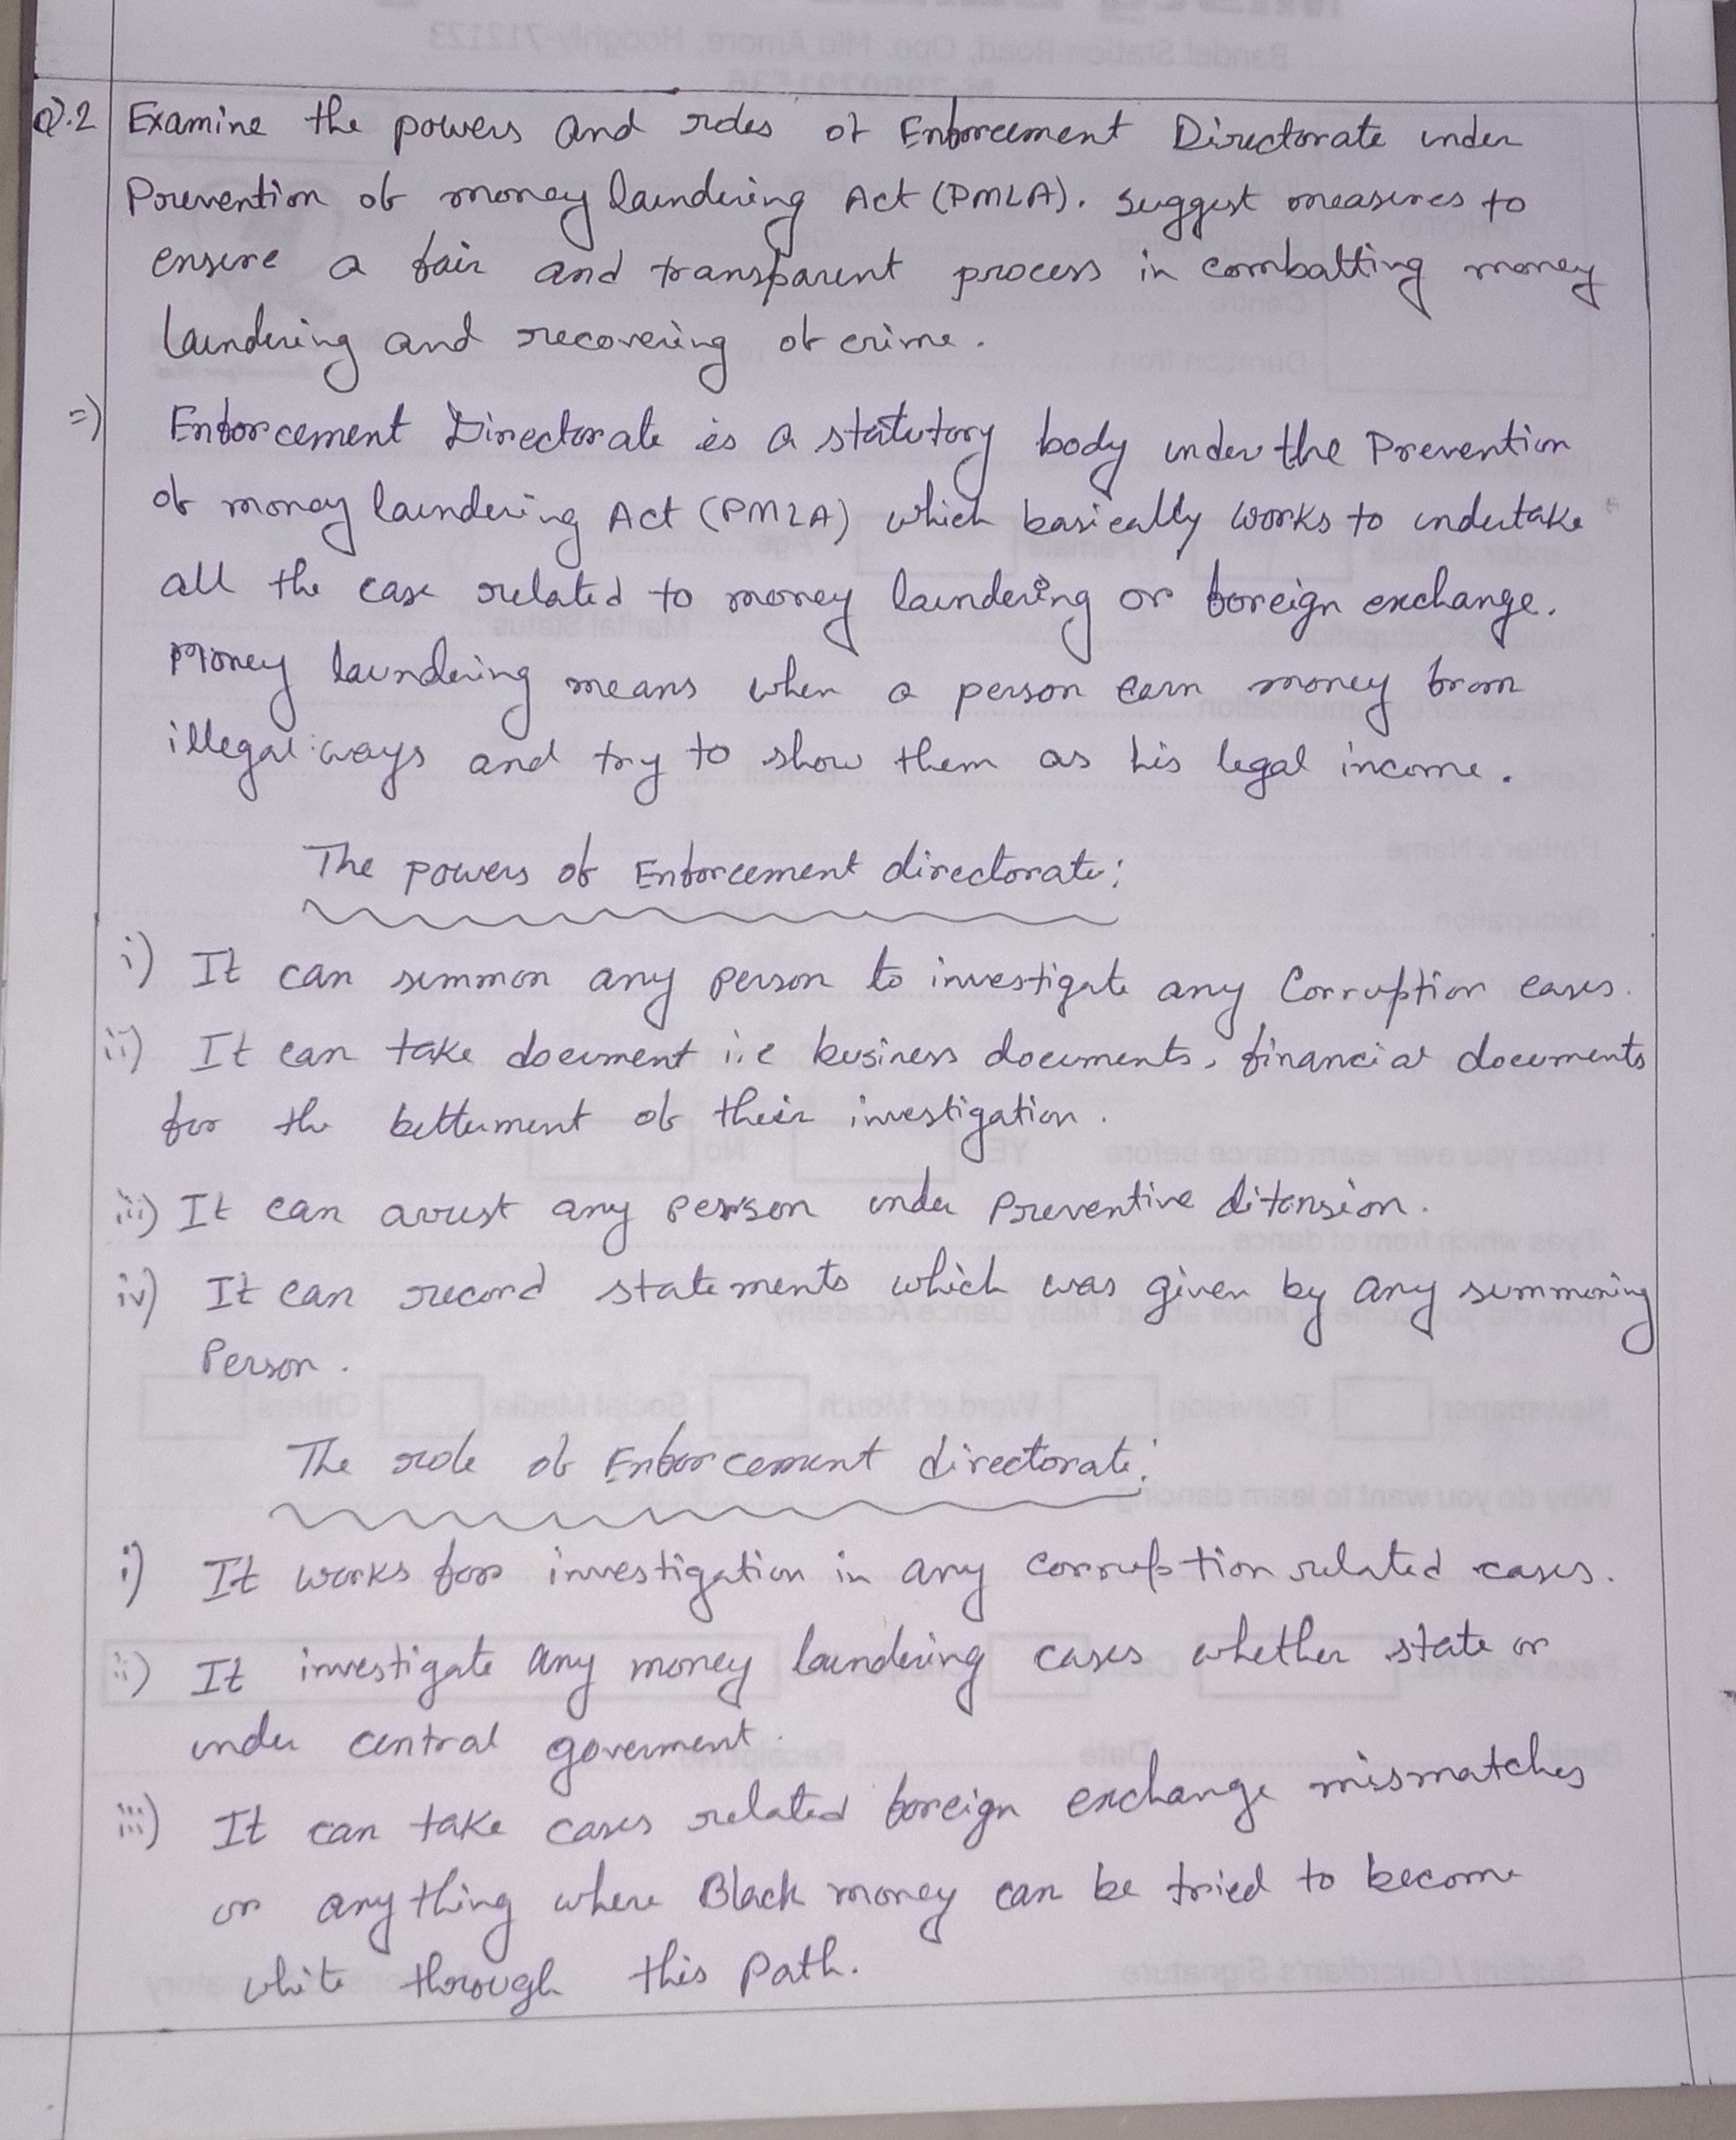 Q.2 Examine the powers and roles of Enforcement Directorate under
Prevention of money laundering Act (PMLA). Suggest measures to
ensure a fair and transparent process in combatting money
laundering and recovering of crime.
=) Enforcement Directorate is a statutory body under the Prevention
of money laundering Act (PMLA) which basically works to undertake
all the case related to money laundering or foreign exchange.
Money laundering means when a person earn money from
illegal ways and try to show them as his legal income.
The powers of Enforcement directorate:
i) It can summon any person to investigate any Corruption cases.
ii) It can take document i.e business documents, financial documents
for the betterment of their investigation.
iii) It can arrest any person under Preventive ditension.
iv) It can record statements which was given by any summoning
Person.
The role of Enforcement directorate:
i) It works for investigation in any corruption related cases.
ii) It investigate any money laundering cases whether state or
under central goverment.
iii) It can take cases related foreign exchange mismatches
or anything where Black money can be tried to become
white through this path.